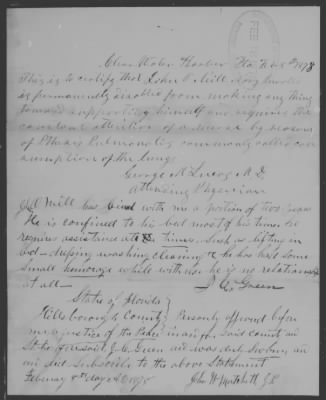 Clear Water Harbor Fla Feb 8th 1898
This is to certify that John A. Mill
is permanently disabled from making any thing
toward supporting himself and requires the
constant attention of a nurse by reasons
of Pthisis Pulmonalis commonly called con
sumption of the lungs
George M D
Attending Physician
J A Mill has bind with me a portion of two years
He is confined to his bed most of his time &
requires assistance at times such as lifting in
bed - dressing washing cleaning & he has had some
small hemorage while with us he is no relation
at all - J G Green
State of Florida }
Hillsborough County } Personly appeared before
me a justice of the Peace in and for said County and
State aforesaid, J. G. Green and was duly Sworn
and Subscribed to the above Statement
February 8th day AD 1898
John W J.P.